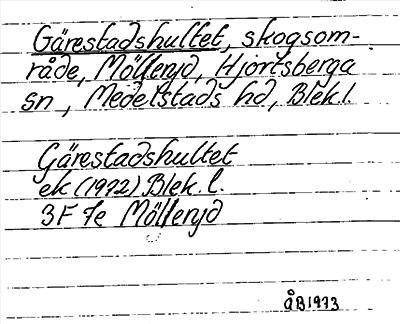 Gärestadshultet, skogsom-
råde, Möllenyd, Hjortsberga
sn, Medelstads hd, Blek.l.
Gärestadshultet
ek (1972) Blek. l.
3F 7e Möllenyd
ÅB1973